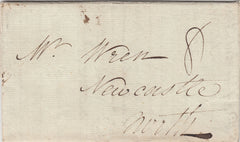 Mr. Wren 8
Newcastle
North